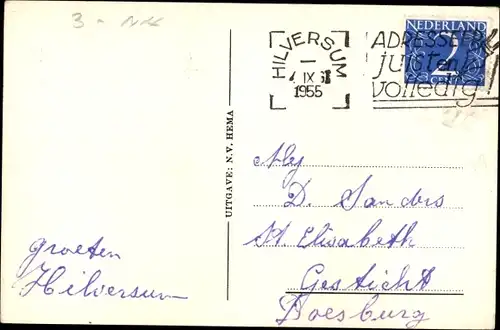 3 -
HILVERSUM
IX
1955
ADRESSEER
juist en
volledig!
NEDERLAND
2
CENT
UITGAVE: N.V. HEMA
D. Sanders
St. Elisabeth
Gesticht
Doesburg
groeten
Hilversum